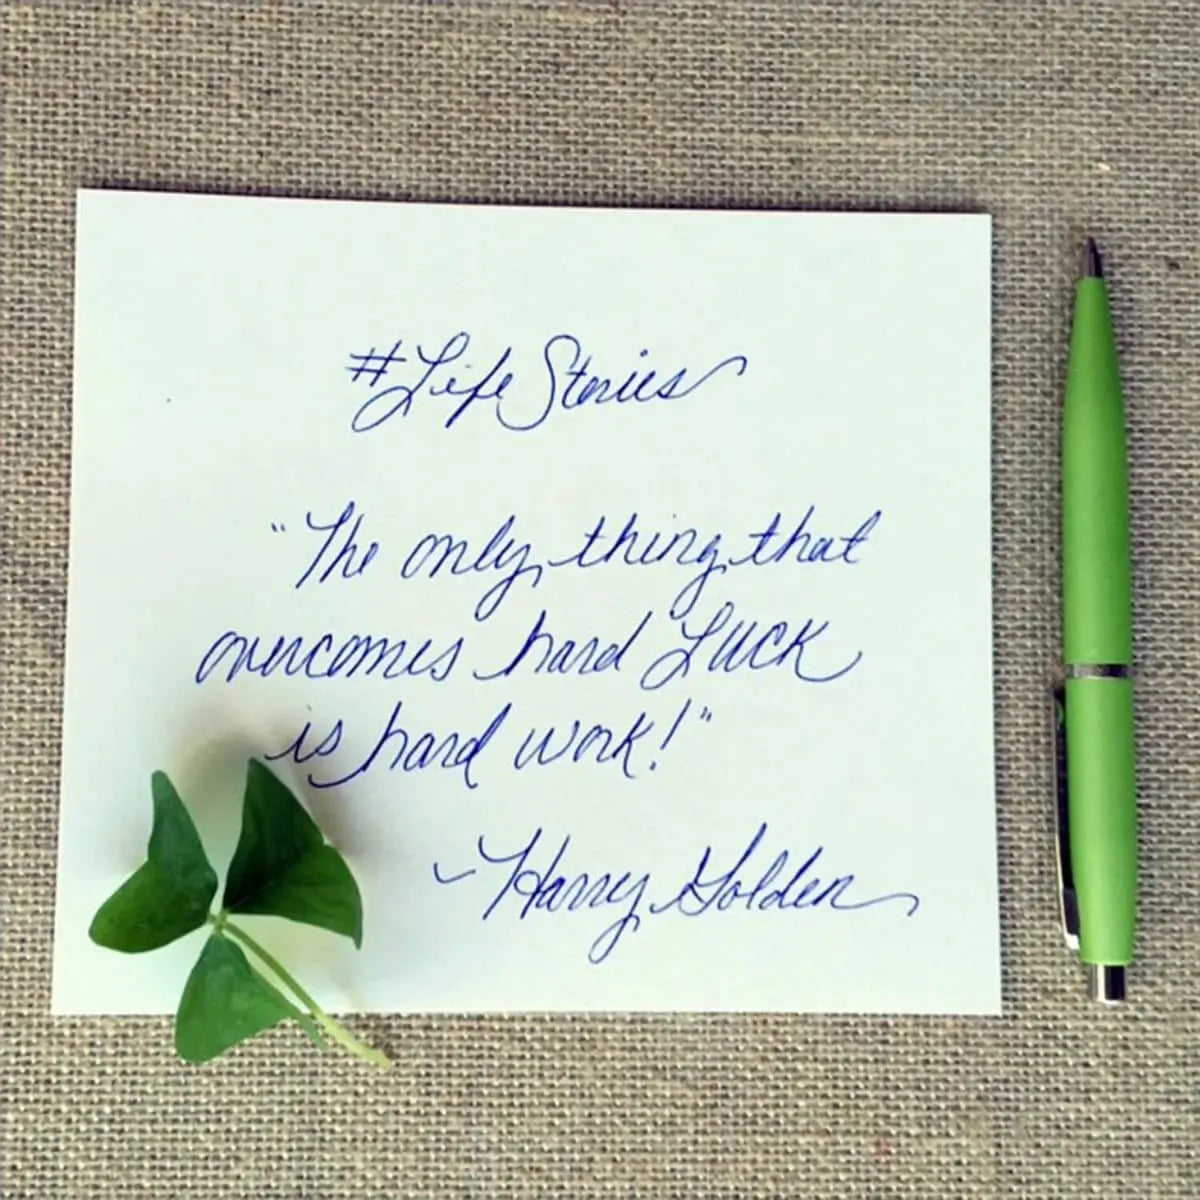 #Life Stories
"The only thing that
overcomes hard LUCK
is hard work!"
~Harry Golden